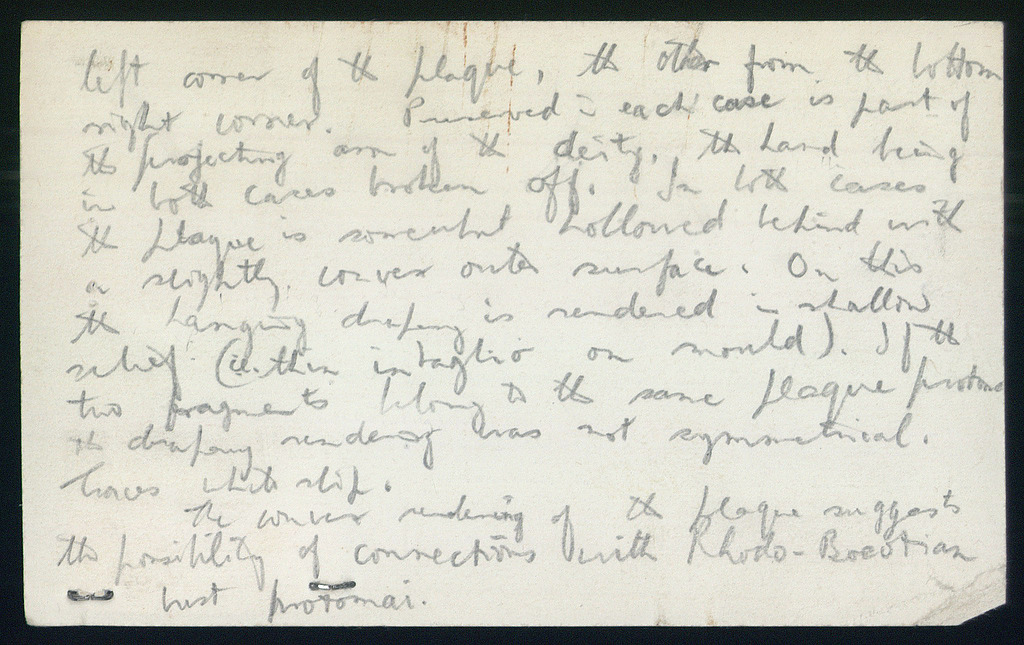 left corner of th plaque, th other from th bottom
right corner. Preserved in each case is part of
th projecting arm of th deity, th hand being
in both cases broken off. In both cases
th plaque is somewhat hollowed behind with
a slightly convex outer surface. On this
th hanging drapery is rendered in shallow
relief (i.e. thin intaglio on mould). If th
two fragments belong to th same plaque
th drapery rendering was not symmetrical.
Traces white slip.
The convex rendering of th plaque suggests
th possibility of connections with Rhodo-Boeotian
bust protomai.